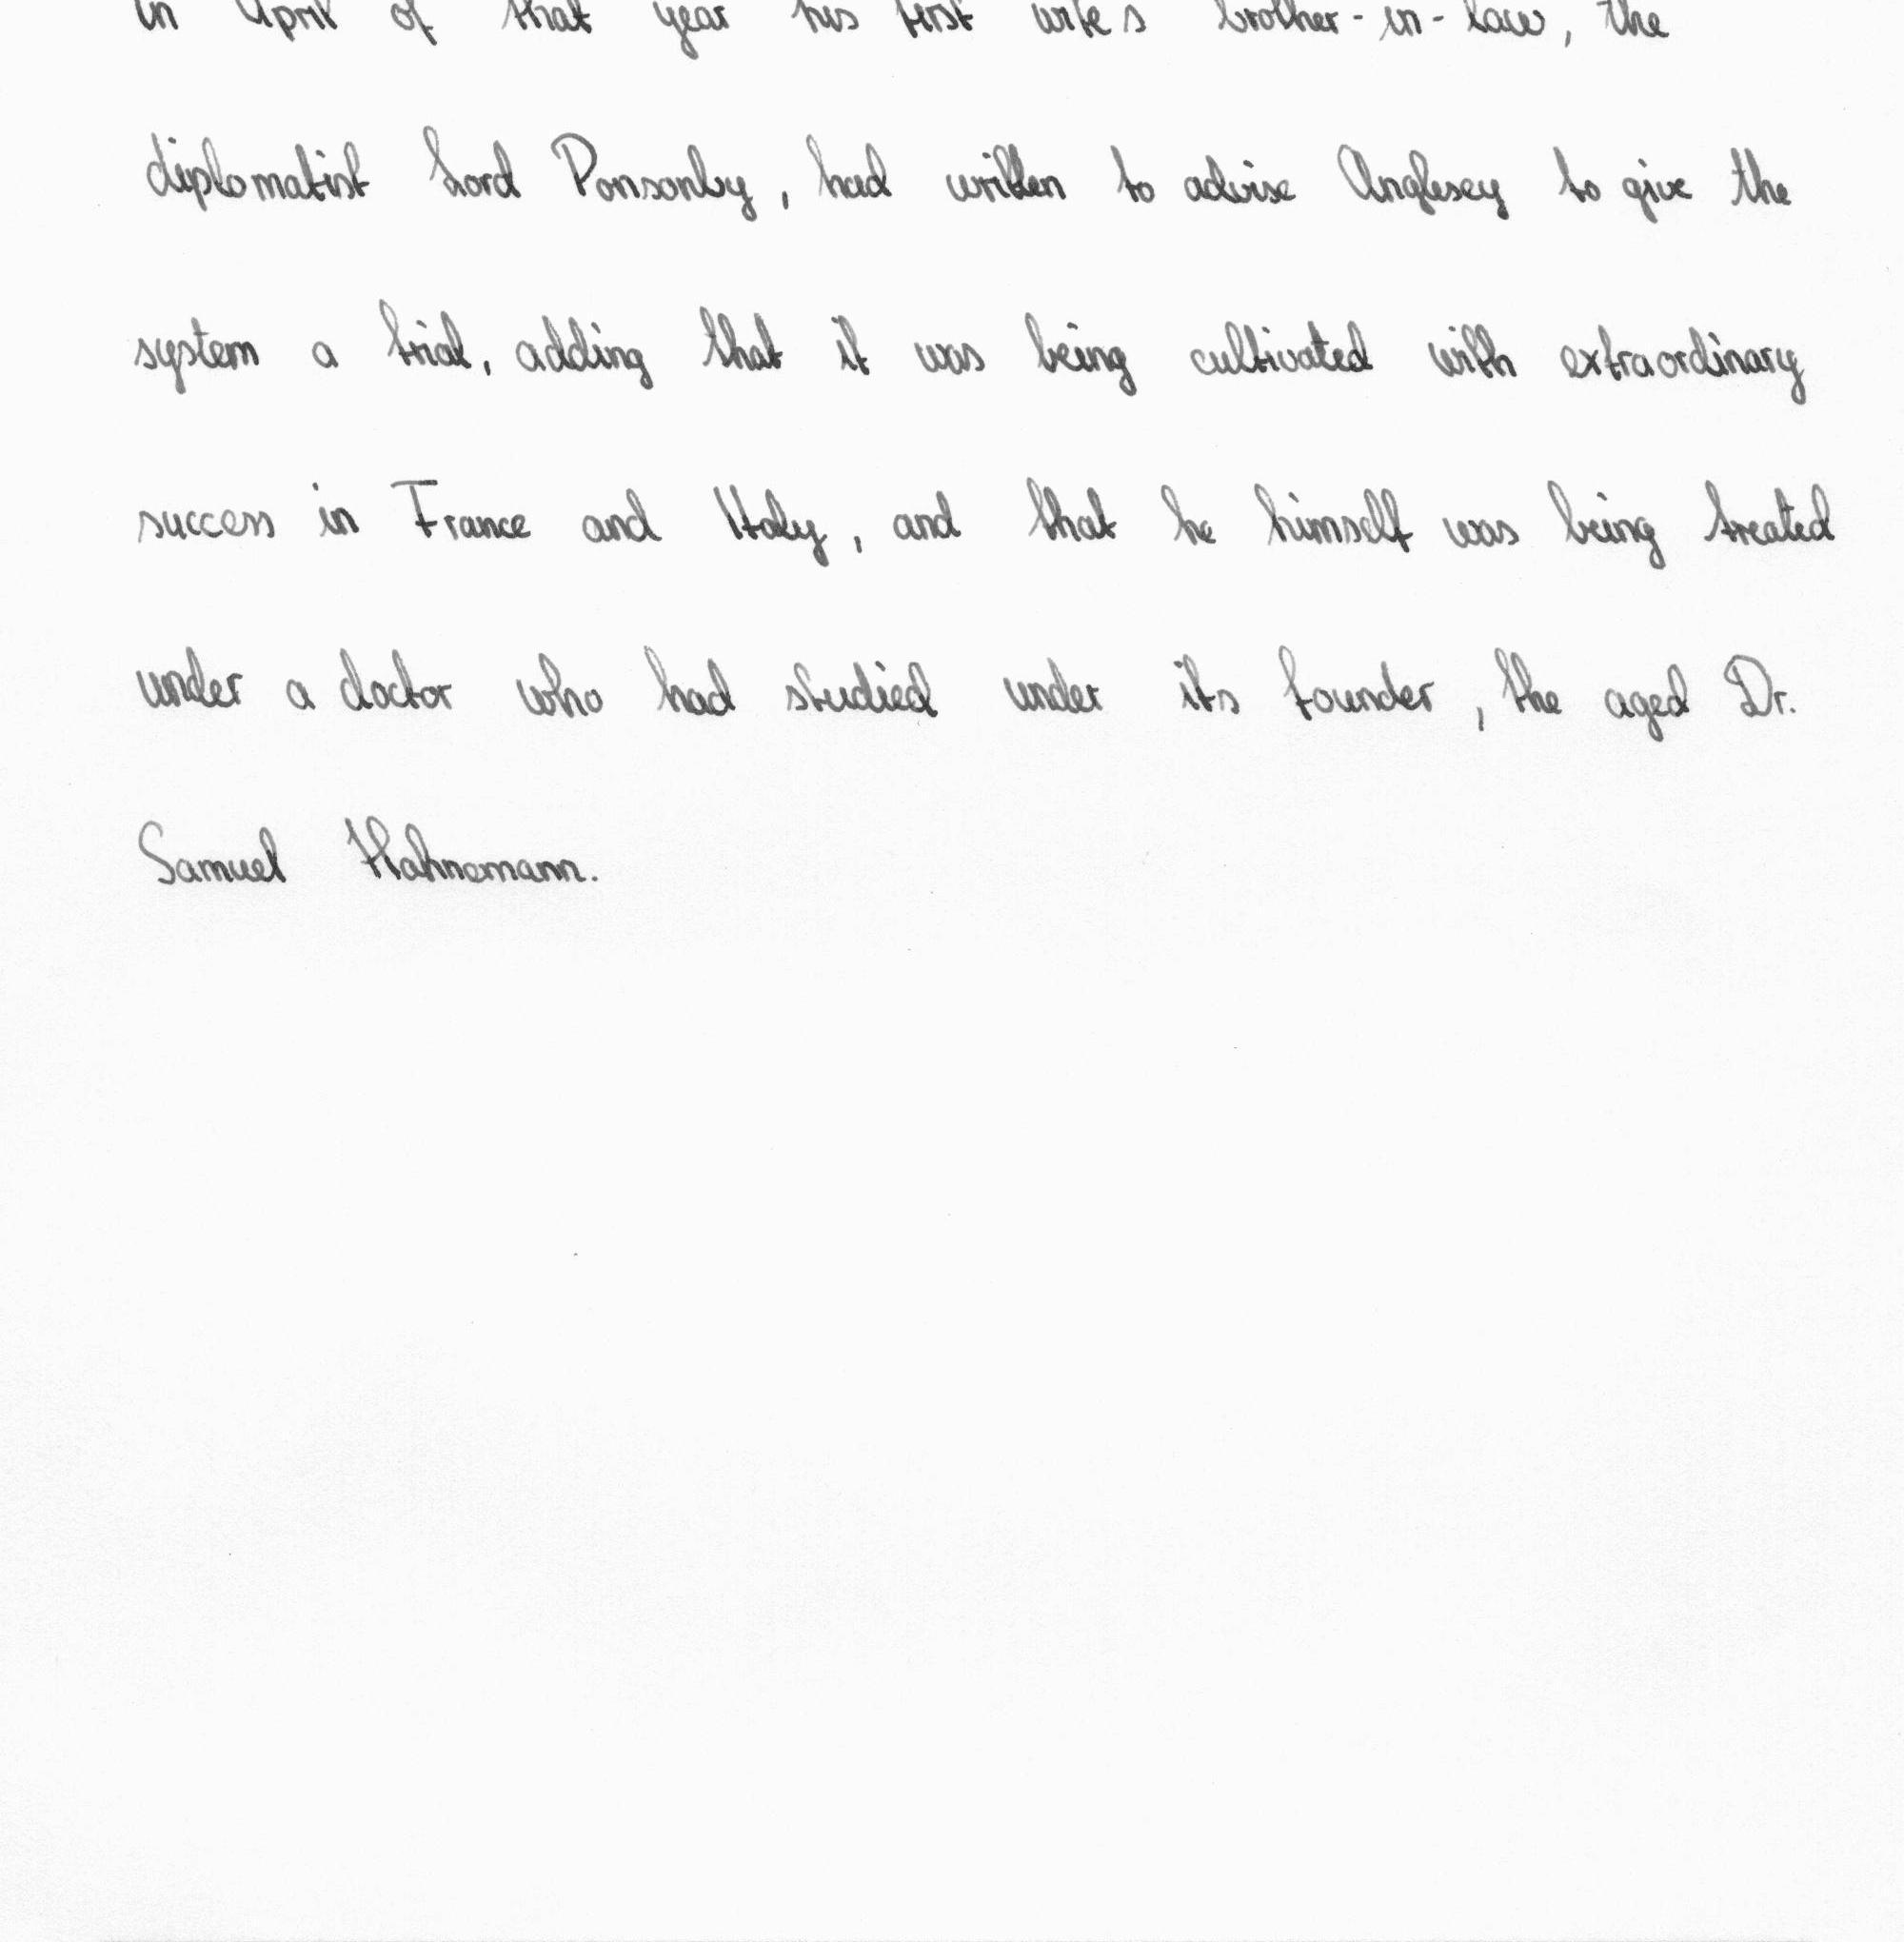 in April of that year his first wife's brother-in-law, the
diplomatist Lord Ponsonby, had written to advise Anglesey to give the
system a trial, adding that it was being cultivated with extraordinary
success in France and Italy, and that he himself was being treated
under a doctor who had studied under its founder, the aged Dr.
Samuel Hahnemann.